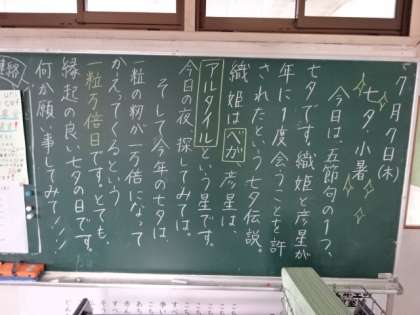 7月7日(木)
七夕・小暑
今日は、五節句の1つ、
七夕です。織姫と彦星が
年に1度会うことを許
されたという七夕伝説。
織姫はベガ、彦星は、
アルタイルという星です。
今日の夜、探してみては。
そして今年の七夕は、
一粒の籾が一万倍になって
かえってくるという
一粒万倍日です。とても、
縁起の良い七夕の日です。
何か願い事してみて!!!
連絡